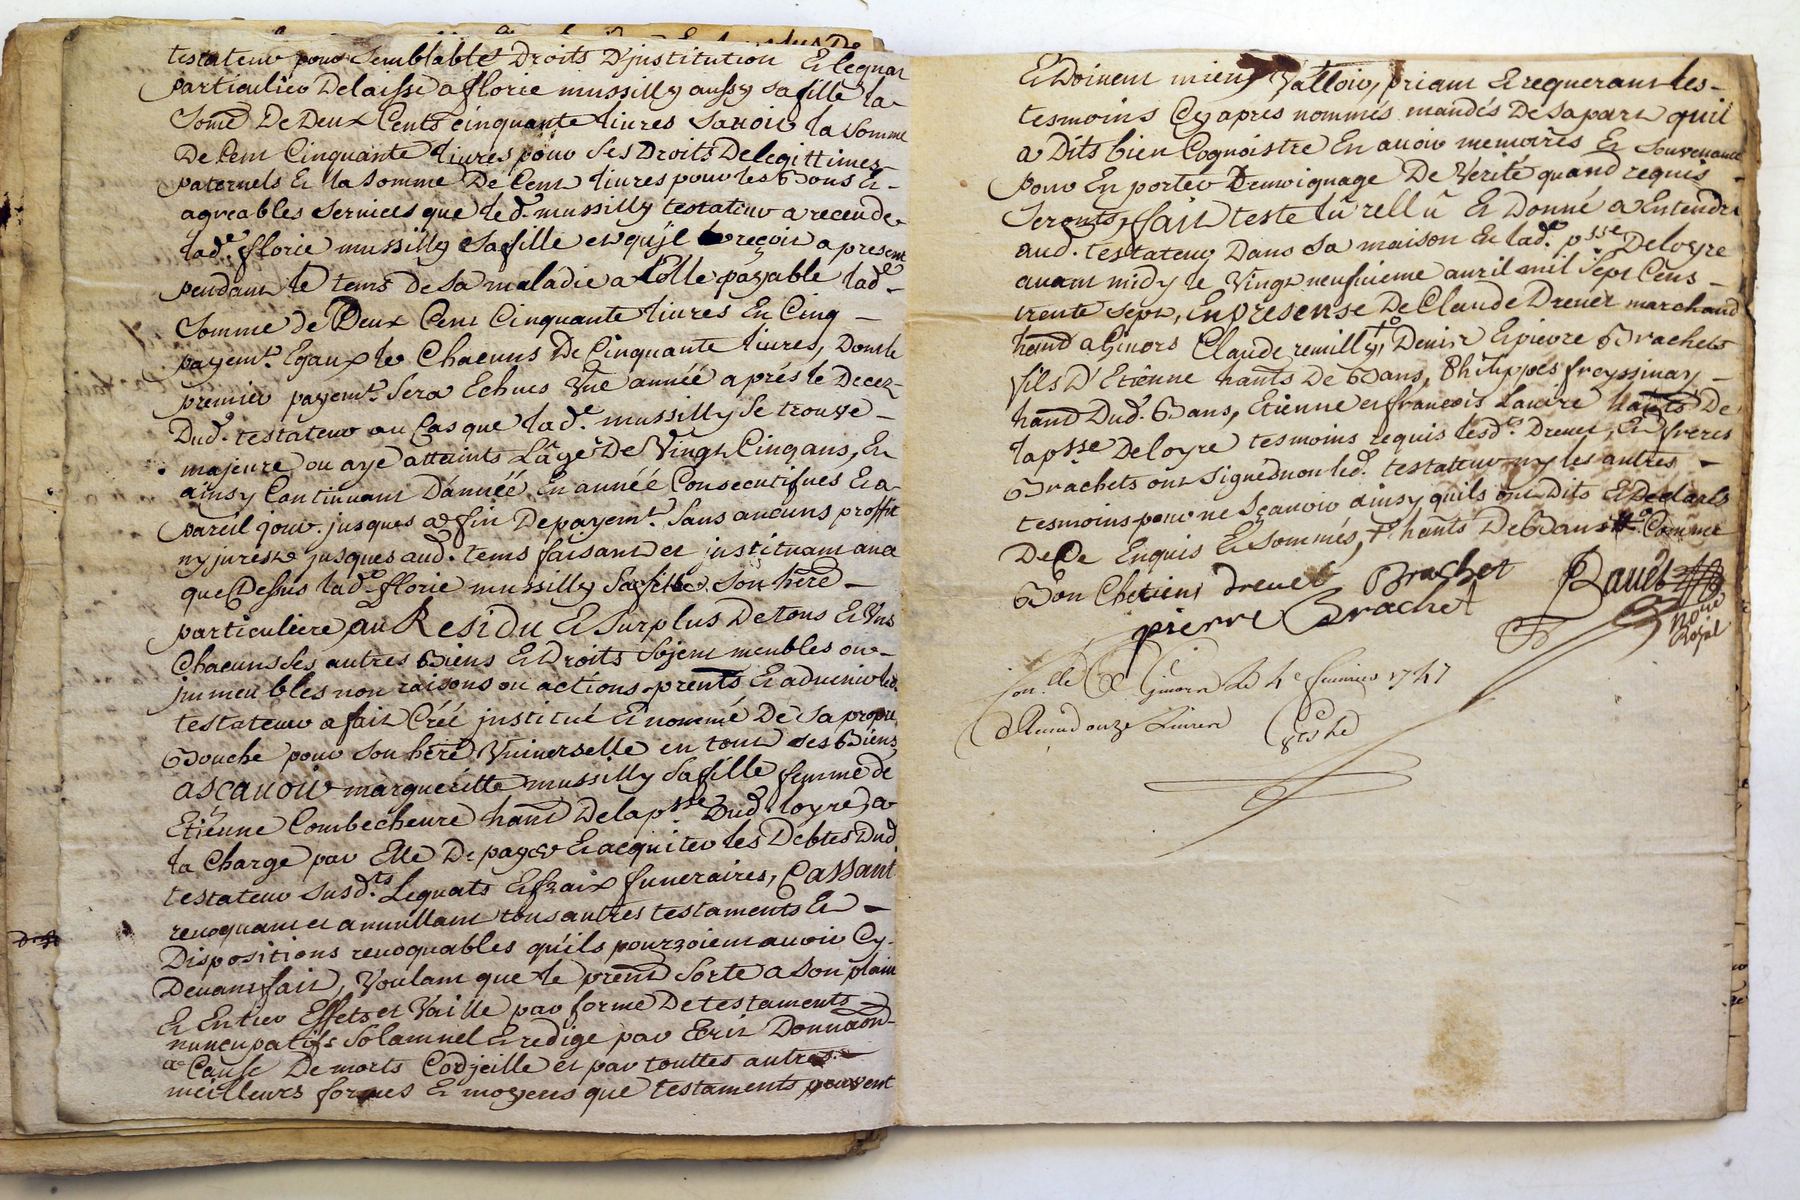 testateur pour semblable Droits D'justitution Et legnat
particulier Delaissé a florie mussilly aussy sa fille la-
Some De Deux Cents cinquante livres Sauoir la Somme
De Cent Cinquante livres pour ses Droits De legittimes
paternels Et la Somme De Cent livres pour les Bons Et-
agreables Seruices que led. mussilly testateur a receu de
lad.e florie mussilly Sa fille et qu'jl reçoit a present
pendant le tems de sa maladie a Elle payable lad.e
Somme de Deux Cent Cinquante livres En Cinq -
payemt. Egaux le Chacuns De Cinquante livres, Dont le
premier payemt. Sera Echus Vne année après le Decez-
Dud. testateur au Cas que lad.e mussilly Se trouve -
majeure ou aye atteints L'âge De Vingt Cinq ans, Et
ainsy Continuant D'année En année Consecutifues Et a-
pareil jour jusques a fin De payemt. Sans aucuns proffit
ny jnterest jusques aud. tems faisant et jnstituant ainsi
que Dessus lad.e florie mussilly Sa fille Son hérē -
particuliere au Residu Et Surplus De tous Et Vns
Chacuns ses autres Biens Et Droits Soyent meubles ou-
jmmeubles non raisons ou actions prents Et aduenir led.
testateur a fait Créé justitué Et nommé De Sa propre
Bouche pour Son hérē Vniuerselle en tout ses Biens
a Sçauoir margueritte mussilly Sa fille femme de
Etienne Combecheure hant De la psse Dud. loyre, a
la Charge par Elle De payer Et acquiter les Debtes Dud.
testateur susd.ts Legnats Et fraix funeraires, Cassant
reuoquant et annullant tous autres testaments Et -
Dispositions reuoquables qu'ils pourroient auoir Cy-
Deuant fait, Voulant que le prent Sorte a Son plain
Et Entier Effets et Vaille par forme De testaments
nuncupatifs Solamnel Et redige par Ecrit Donnaōn
a Cause De morts Codjcille et par touttes autres -
meilleurs formes Et moyens que testaments peuvent
Et Doiuent mieux Valloir, priant Et requerant les -
tesmoins Cy apres nommés mandés De Sa part quil
a Dits bien Cognoistre En auoir memoires Et Souuenance
pour En porter Temoignage De Vérité quand requis
Seronts, fait testé lû rellû Et Donné a Entendre
aud. testateur Dans Sa maison En lad.e psse De loyre
auant midy le Vingt neufuieme auril mil Sept Cens -
trente Sept, En presense De Claude Dreuet marchand
hant a Giuors Claude remilly, Denis Et pierre Brachets
fils D'Etienne hants De Bans, Philippes freyssinay -
hant Dud. Bans, Etienne et francois Lauire hants De
la psse De loyre tesmoins requis lesd.s Dreuet, Et freres
Brachets ont Signé non led. testateur ny les autres -
tesmoins pour ne Sçauoir ainsy quils ont Dits Et Declarés
De Ce Enquis Et Sommés, hants De Bans Comme
Bon Chetiens Dreuet Brachet Bauet
pierre Brachet
nore
Royal
Con.lé a Giuors le 4e feurier 1741
Receu onze Liures